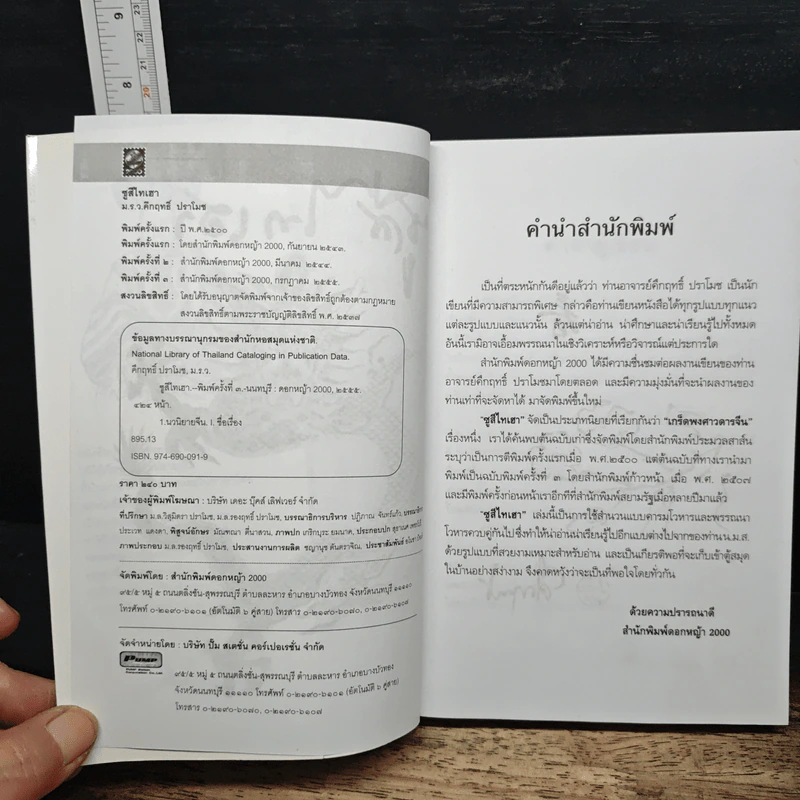 ซูสีไทเฮา
ม.ร.ว.คึกฤทธิ์ ปราโมช
พิมพ์ครั้งแรก : ปี พ.ศ.๒๕๐๐
พิมพ์ครั้งแรก : โดยสำนักพิมพ์ดอกหญ้า 2000, กันยายน ๒๕๔๓.
พิมพ์ครั้งที่ ๒ : สำนักพิมพ์ดอกหญ้า 2000, มีนาคม ๒๕๔๔.
พิมพ์ครั้งที่ ๓ : สำนักพิมพ์ดอกหญ้า 2000, กรกฎาคม ๒๕๕๕.
สงวนลิขสิทธิ์ : โดยได้รับอนุญาตจัดพิมพ์จากเจ้าของลิขสิทธิ์ถูกต้องตามกฎหมาย
สงวนลิขสิทธิ์ตามพระราชบัญญัติลิขสิทธิ์ พ.ศ. ๒๕๓๗
ข้อมูลทางบรรณานุกรมของสำนักหอสมุดแห่งชาติ.
National Library of Thailand Cataloging in Publication Data.
คึกฤทธิ์ ปราโมช, ม.ร.ว.
ซูสีไทเฮา.--พิมพ์ครั้งที่ ๓.-นนทบุรี : ดอกหญ้า 2000, ๒๕๕๕.
๔๒๔ หน้า.
1.นวนิยายจีน. I. ชื่อเรื่อง
895.13
ISBN. 974-690-091-9
ราคา ๒๔๐ บาท
เจ้าของผู้พิมพ์โฆษณา : บริษัท เดอะ บุ๊คส์ เลิฟเวอร์ จำกัด
ที่ปรึกษา ม.ล.วิสุมิตรา ปราโมช, ม.ล.รองฤทธิ์ ปราโมช, บรรณาธิการบริหาร ปฏิภาณ จันทร์แก้ว,
ประเวท แดงดา, พิสูจน์อักษร มัณฑณา ตี่นาสวน, ภาพปก เกริกบุระ ยมนาค, ประกอบปก
ภาพประกอบ ม.ล.รองฤทธิ์ ปราโมช, ประสานงานการผลิต ชญานุช ตันตราจิณ, ประชาสัมพันธ์
จัดพิมพ์โดย : สำนักพิมพ์ดอกหญ้า 2000
๙๕/๕ หมู่ ๕ ถนนตลิ่งชัน-สุพรรณบุรี ตำบลละหาร อำเภอบางบัวทอง จังหวัดนนทบุรี ๑๑๑๑๐
โทรศัพท์ ๐-๒๑๙๐-๖๑๐๑ (อัตโนมัติ ๖ คู่สาย) โทรสาร ๐-๒๑๙๐-๖๐๗๐, ๐-๒๑๙๐-๖๑๐๗
จัดจำหน่ายโดย : บริษัท ปั๊ม สเตชั่น คอร์เปอเรชั่น จำกัด
PUMP
๙๕/๕ หมู่ ๕ ถนนตลิ่งชัน-สุพรรณบุรี ตำบลละหาร อำเภอบางบัวทอง
จังหวัดนนทบุรี ๑๑๑๑๐ โทรศัพท์ ๐-๒๑๙๐-๖๑๐๑ (อัตโนมัติ ๖ คู่สาย)
โทรสาร ๐-๒๑๙๐-๖๐๗๐, ๐-๒๑๙๐-๖๑๐๗
คำนำสำนักพิมพ์
เป็นที่ตระหนักกันดีอยู่แล้วว่า ท่านอาจารย์คึกฤทธิ์ ปราโมช เป็นนัก
เขียนที่มีความสามารถพิเศษ กล่าวคือท่านเขียนหนังสือได้ทุกรูปแบบทุกแนว
แต่ละรูปแบบและแนวนั้น ล้วนแต่น่าอ่าน น่าศึกษาและน่าเรียนรู้ไปทั้งหมด
อันนี้เรามิอาจเอื้อมพรรณนาในเชิงวิเคราะห์หรือวิจารณ์แต่ประการใด
สำนักพิมพ์ดอกหญ้า 2000 ได้มีความชื่นชมต่อผลงานเขียนของท่าน
อาจารย์คึกฤทธิ์ ปราโมชมาโดยตลอด และมีความมุ่งมั่นที่จะนำผลงานของ
ท่านเท่าที่จะจัดหาได้ มาจัดพิมพ์ขึ้นใหม่
"ซูสีไทเฮา" จัดเป็นประเภทนิยายที่เรียกกันว่า "เกร็ดพงศาวดารจีน"
เรื่องหนึ่ง เราได้ค้นพบต้นฉบับเก่าซึ่งจัดพิมพ์โดยสำนักพิมพ์ประมวลสาส์น
ระบุว่าเป็นการตีพิมพ์ครั้งแรกเมื่อ พ.ศ.๒๕๐๐ แต่ต้นฉบับที่ทางเรานำมา
พิมพ์เป็นฉบับพิมพ์ครั้งที่ ๓ โดยสำนักพิมพ์ก้าวหน้า เมื่อ พ.ศ. ๒๕๐๗
และมีพิมพ์ครั้งก่อนหน้าเราอีกทีที่สำนักพิมพ์สยามรัฐเมื่อหลายปีมาแล้ว
"ซูสีไทเฮา" เล่มนี้เป็นการใช้สำนวนแบบคารมโวหารและพรรณนา
โวหารควบคู่กันไปซึ่งทำให้น่าอ่านน่าเรียนรู้ไปอีกแบบต่างไปจากของท่านน.ม.ส.
ด้วยรูปแบบที่สวยงามเหมาะสำหรับอ่าน และเป็นเกียรติพอที่จะเก็บเข้าตู้สมุด
ในบ้านอย่างสง่างาม จึงคาดหวังว่าจะเป็นที่พอใจโดยทั่วกัน
ด้วยความปรารถนาดี
สำนักพิมพ์ดอกหญ้า 2000
9
8
23
22
21
20